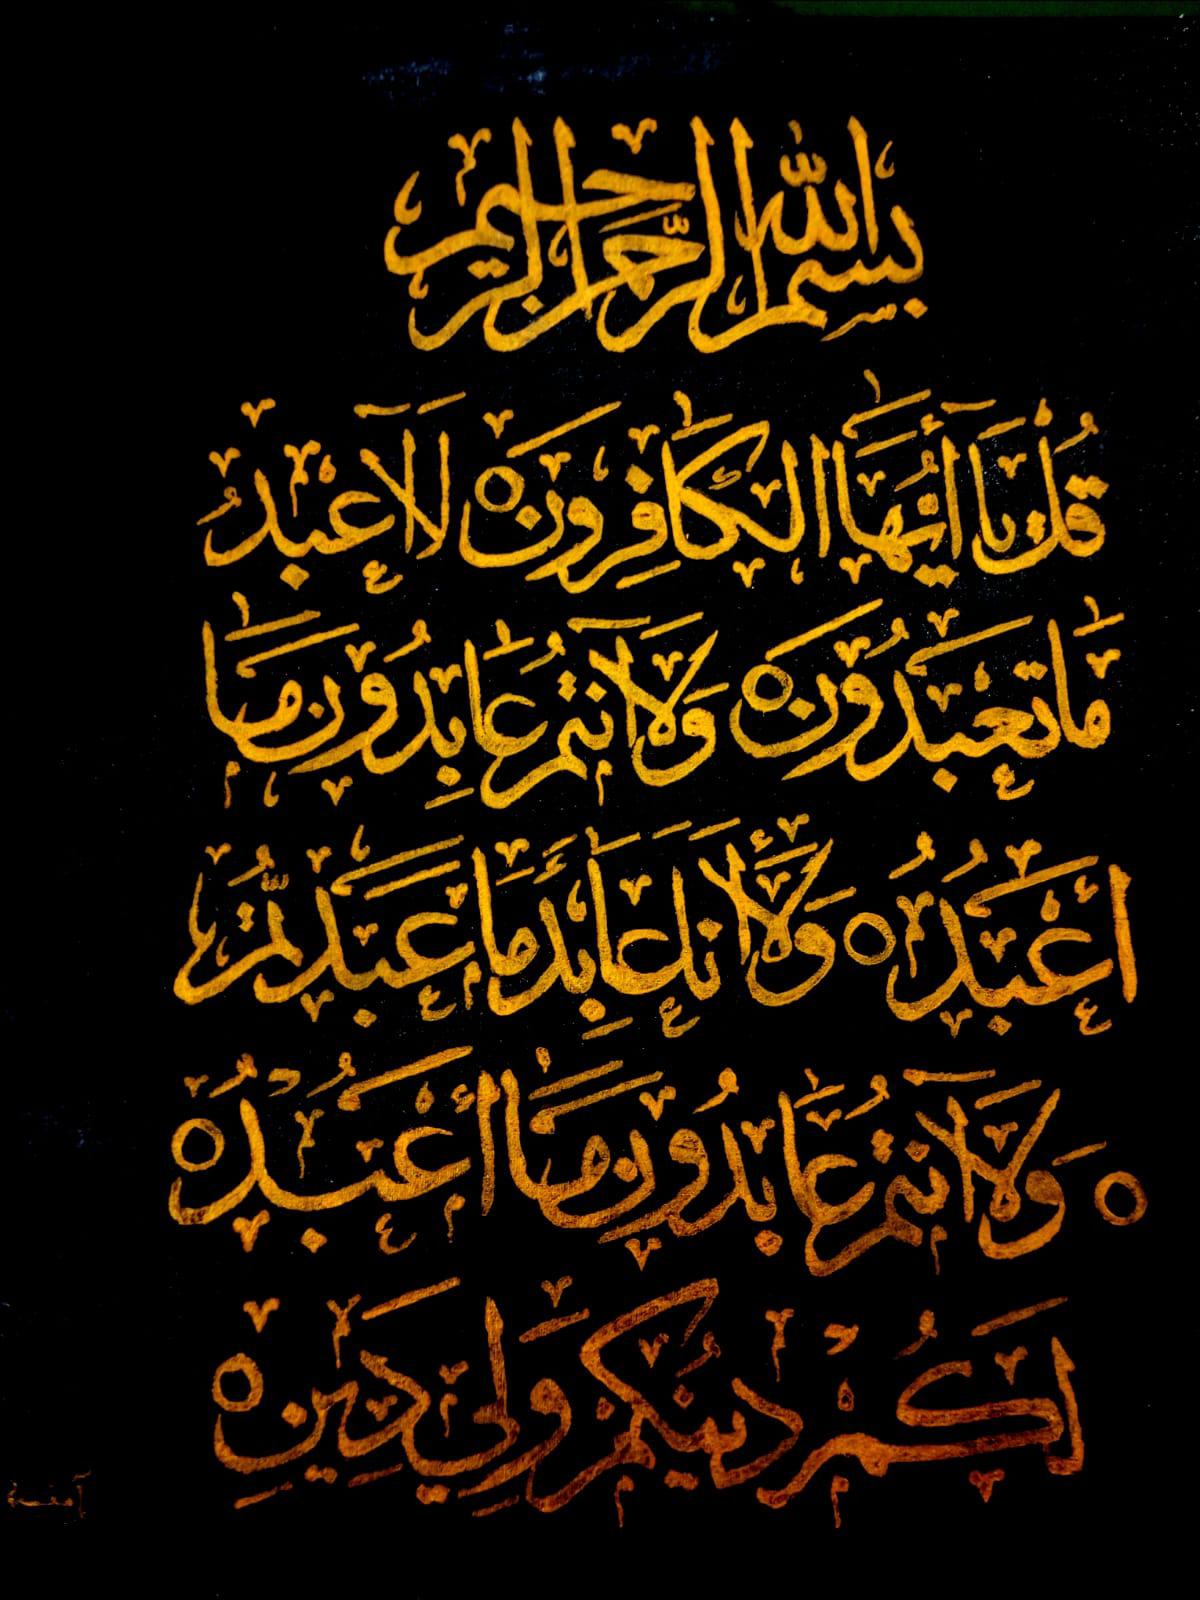 بسم الله الرحمن الرحيم
قُلْ يَا أَيُّهَا الْكَافِرُونَ ○ لَا أَعْبُدُ
مَا تَعْبُدُونَ ○ وَلَا أَنْتُمْ عَابِدُونَ مَا
أَعْبُدُ ○ وَلَا أَنَا عَابِدٌ مَا عَبَدْتُّمْ
○ وَلَا أَنْتُمْ عَابِدُونَ مَا أَعْبُدُ ○
لَكُمْ دِينُكُمْ وَلِيَ دِينِ ○
آمنة